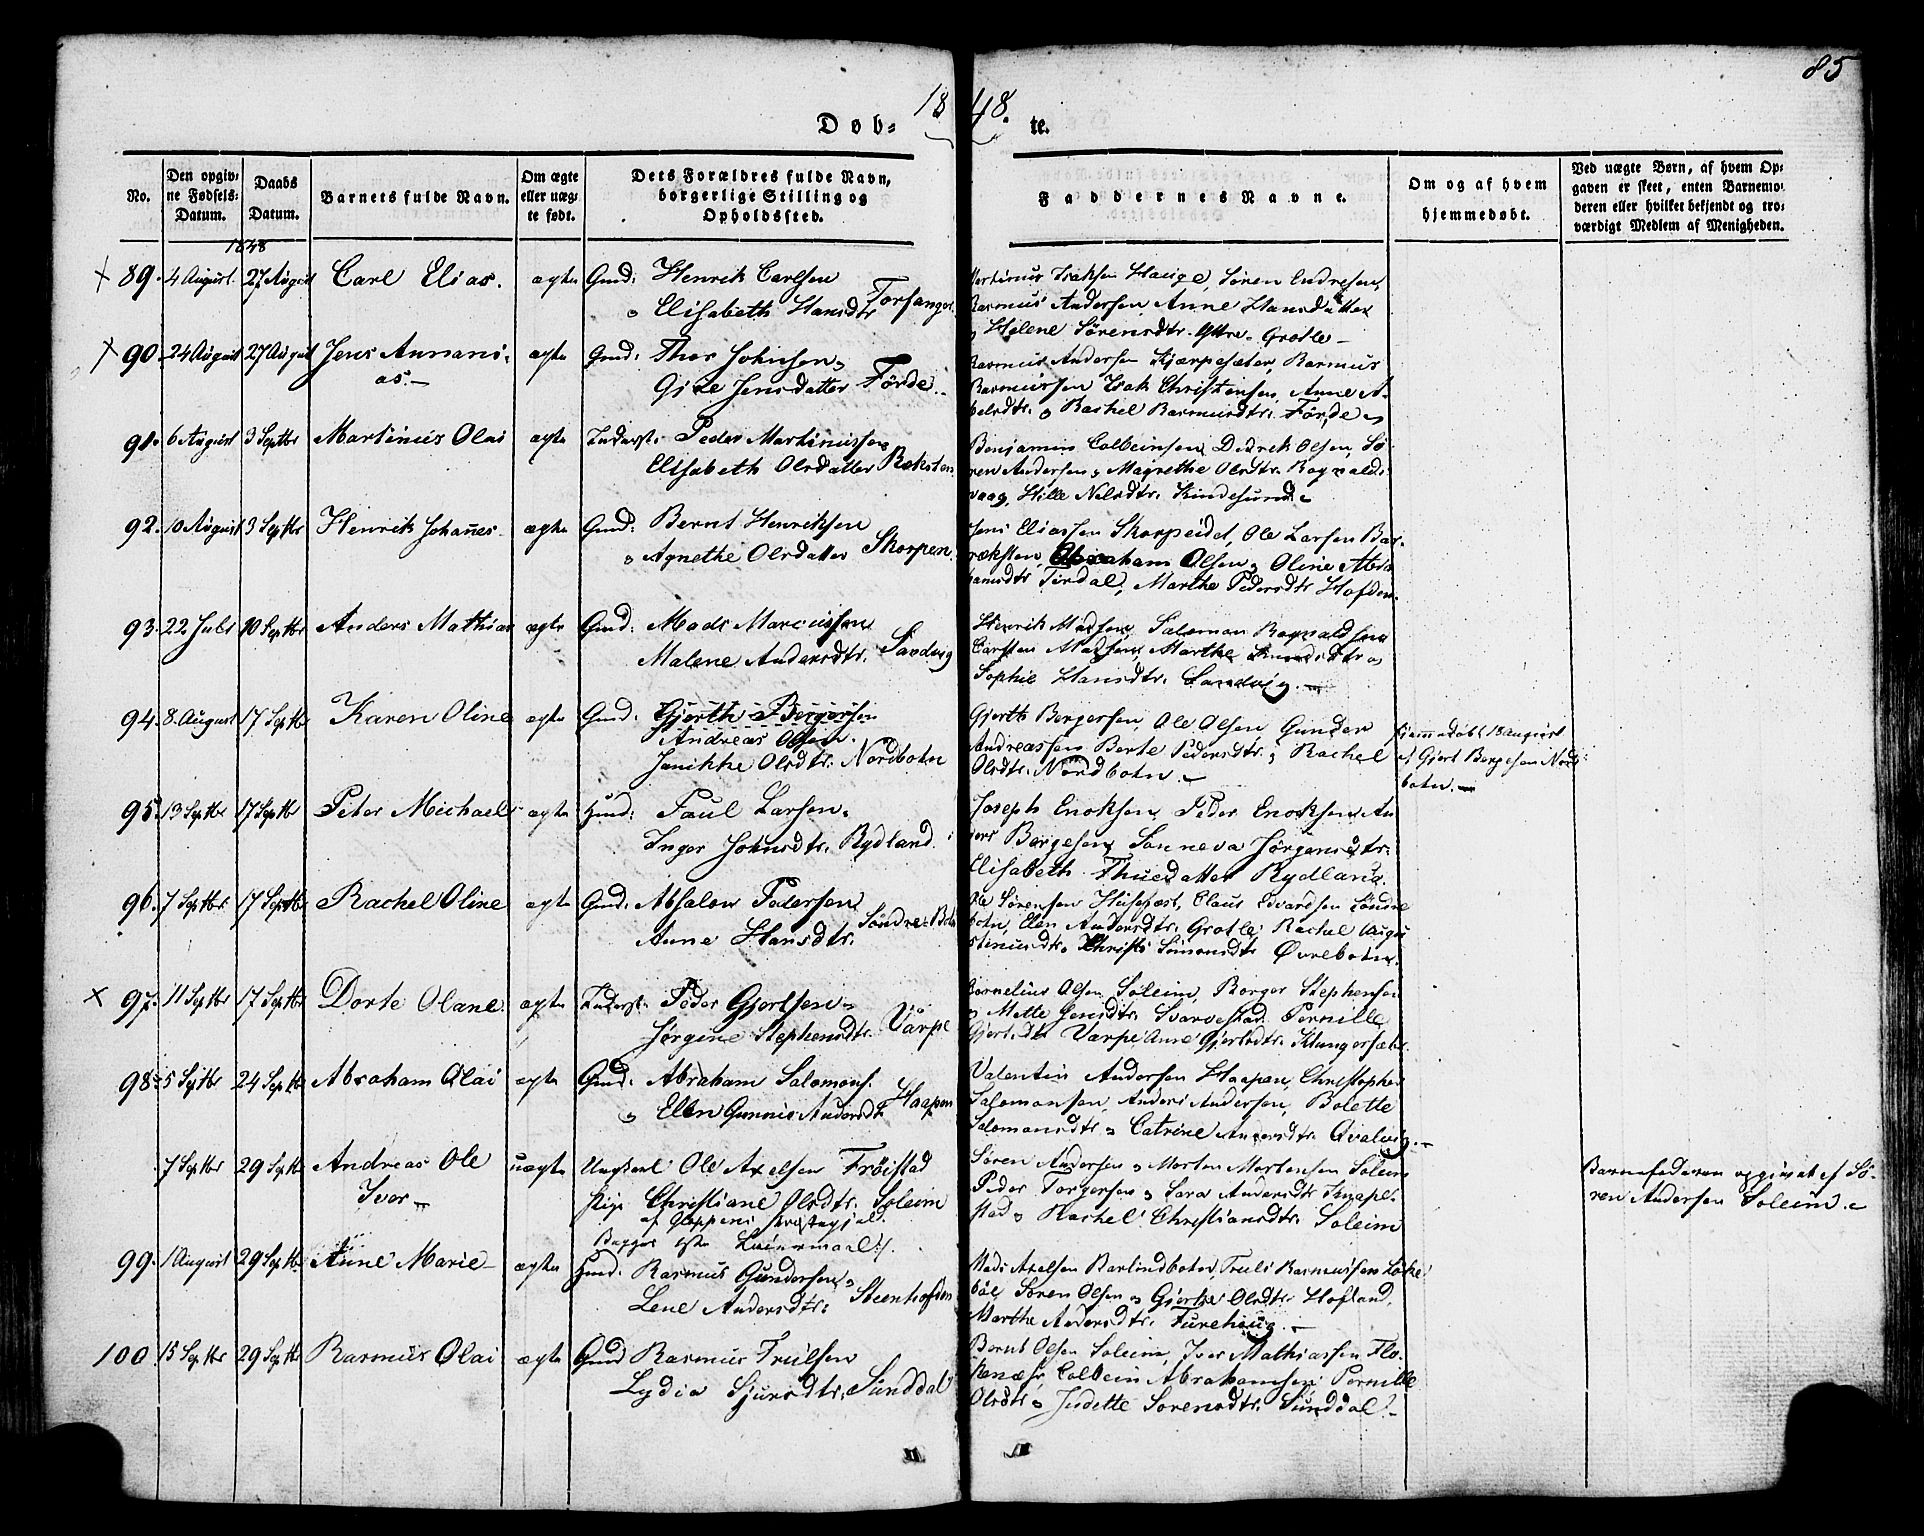 85
1848.
Døb- te.
No.
Den opgiv-
ne Fødsels-
Datum.
Daabs
Datum.
Barnets fulde Navn.
Om ægte
eller uæg-
te født.
Dets Forældres fulde Navn,
borgerlige Stilling og
Opholdssted.
Faddernes Navne.
Om og af hvem
hjemmedøbt.
Ved uægte Børn, af hvem Op-
gaven er skeet, enten Barnemo-
deren eller hvilket bekjendt og tro-
værdigt Medlem af Menigheden.
1848
× 89. 4 August. 27 August Carl Elias. ægte Gmd: Henrik Carlsen
o Elisabeth Hansdtr Torsanger
Martinus Isaksen Hauge, Sören Endresen,
Rasmus Andersen Anne Hansdatter
o Helene Sörensdtr. Yttre-Grotle
× 90. 24 August 27 August Jens Annani-
as. ægte Gmd: Thor Johnsen o
Gjre Jensdatter Förde.
Rasmus Andersen Kjærpesæter, Rasmus
Rasmussen Isak Christensen, Anne A-
belsdtr. o Rachel Rasmusdtr. Förde
91. 6 August 3 Septbr Martinus Olai ægte Inderst: Peder Martinussen
Elisabeth Olsdatter Ræksten
Benjamin Colbeinsen, Didrek Olsen, Sö-
ren Andersen o Magrethe Olsdtr. Rognalds-
vaag, Hille Nilsdtr. Kindesund
92. 10 August 3 Septbr Henrik Johannes ægte Gmd: Bernt Henriksen
o Agnethe Olsdatter Skorpen.
Jens Eliassen Skorpeidet, Ole Larsen Ba-
ræksten, Abraham Olsen o Oline Abra-
hamsdtr Tirdal, Marthe Pedersdtr Hofden
93. 22 Juli 10 Septbr Anders Mathias ægte Gmd: Mads Marcussen
Malene Andersdtr. Sandvig
Henrik Madsen, Salomon Rognaldsen
Carsten Madsen, Marthe dtr o
Sophie Hansdtr. Sandvig.
94. 8. August 17 Septbr Karen Oline ægte Gmd: Gjerth Bergersen
Andreas Olsen.
Janikke Olsdtr: Nordbotn
Gjerth Bergersen, Ole Olsen, Gunder
Andreassen Berte Pedersdtr: o Rachel
Olsdtr. Nordbotn.
Hjemmedöbt 13 August
af Gjert Bergesen Nord-
botn.
95. 13 Septbr 17 Septbr Peter Michael ægte Gmd: Paul Larsen o
Inger Johnsdtr. Rydland.
Joseph Enoksen, Peder Enoksen An-
ders Bergesen Sanneva Jörgensdtr:
Elisabeth Thuesdatter Rydland.
96. 7 Septbr. 17 Septbr Rachel Oline ægte Gmd: Absalon Pedersen
Anne Hansdtr. Söndre-Botn
Ole Sörensen Husefæst, Claus Edvardsen Söndre
botn, Elen Andersdtr. Grotle, Rachel Augu-
stinusdtr. Christi Simonsdtr Övrebotn.
× 97. 11 Septbr 17 Septbr Dorte Olane ægte Inderst: Peder Gjertsen o
Jörgine Stephensdtr. Varpe
Cornelius Olsen Soleim, Borger Stephensen
o Mette Jensdtr. Svarvestad Pernille
Gjertsdtr Varpe Anne Gjertsdtr. Klungersæter
98. 5 Septbr 24 Septbr Abraham Olai ægte Gmd: Abraham Salomons.
o Elen Gunnie Andersdtr Haapen
Valentin Andersen Haapen, Christopher
Salomonsen, Anders Andersen, Bolette
Salomonsdtr o Catrine Andersdtr. Qvalvig.
7 Septbr 29 Septbr Andreas Ole
Iver uægte Ungkarl Ole Axelsen Fröistad
Pige Christiane Olsdtr. Soleim
af Gloppens Præstegjeld.
Begges 1ste Leiermaal
Sören Andersen o Morten Mortensen Soleim
Peder Torgersen o Sara Andersdtr Knapl-
stad o Rachel Christiansdtr. Soleim
Barnefaderen opgivet af Sö-
ren Andersen Soleim.
99. 1 August 29 Septbr Anne Marie ægte Gmd. Rasmus Gundersen o
Lene Andersdtr: Steenhofden
Mads Axelsen Barlindbotn, Truls Rasmussen Løke-
böe, Sören Olsen o Gjertie Olsdtr Hofland,
Marthe Andersdtr. Furehaug.
100 15 Septbr 29 Septbr Rasmus Olai ægte Gmd Rasmus Trulsen
Lydia Sjursdtr. Sunddal
Bernt Olsen Soleim, Iver Mathiassen Flo-
kenæs, Colbein Abrahamsen Pernille
Olsdtr o Judette Sorensdtr. Sunddal